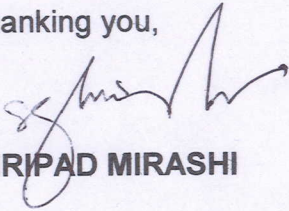 anking you,
RIPAD MIRASHI